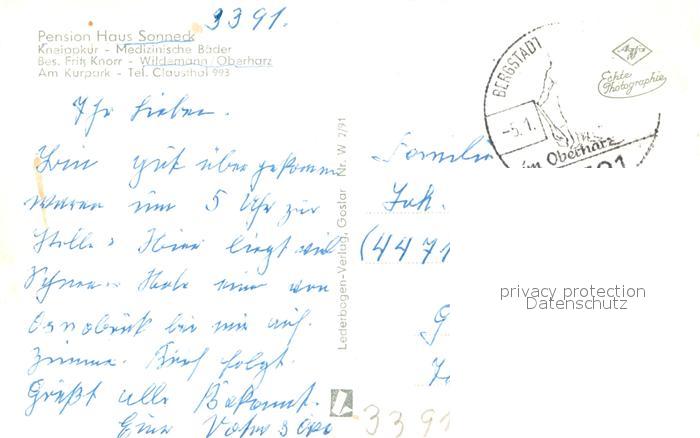 3391.
Pension Haus Sonneck
Kneippkur - Medizinische Bäder
Bes. Fritz Knorr - Wildemann/Oberharz
Am Kurpark - Tel. Clausthal 993
BERGSTADT
-5.1.
im Oberharz
Agfa
Echte
Photographie
Ihr Lieben.
gut über gekommen
waren um 5 Uhr zur
Stelle. Hier liegt viel
Schnee. Habe eine von
Osnabrück bei mir auf.
Zimmer. Brief folgt.
Grüßt alle Bekannt.
Familie
Jak.
(4471
Lederbogen-Verlag, Goslar Nr. W 2/91
privacy protection
Datenschutz
3391